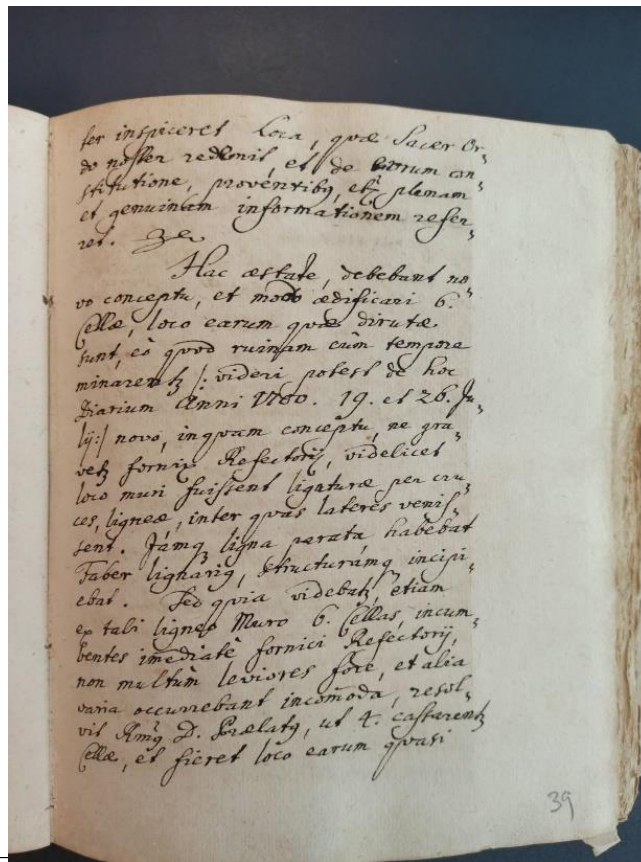 ter inspiceret Loca, quæ Sacer Or„
do noster redemit, et de eorum con„
stitutione, proventibq, etc plenam
et genuinam informationem refer„
ret.
Hac æstate, debebant no„
vo conceptu, et modo ædificari 6.
Cellæ, loco earum quæ dirutæ
sunt, eò quod ruinam cum tempore
minarentz |: videri potest de hoc
Diarium Anni 1760. 19. et 26. Ju„
lij :| novo, inquam conceptu, ne gra„
vetz fornix Refectorij, videlicet
loco muri fuissent ligaturæ per cru„
ces, ligneæ, inter quas lateres venis„
sent. Jámq ligna parata habebat
Faber lignariq, structurámq incipi„
ebat. Sed quia videbatz, etiam
ex tali ligneo Muro 6. Cellas, incum„
bentes imediatè fornici Refectorij,
non multùm leviores fore, et alia
varia occurrebant incom̃oda, resol„
vit Rmq D. Prælatq, ut 4. cassarentz
Cellæ, et fieret loco earum quasi
39